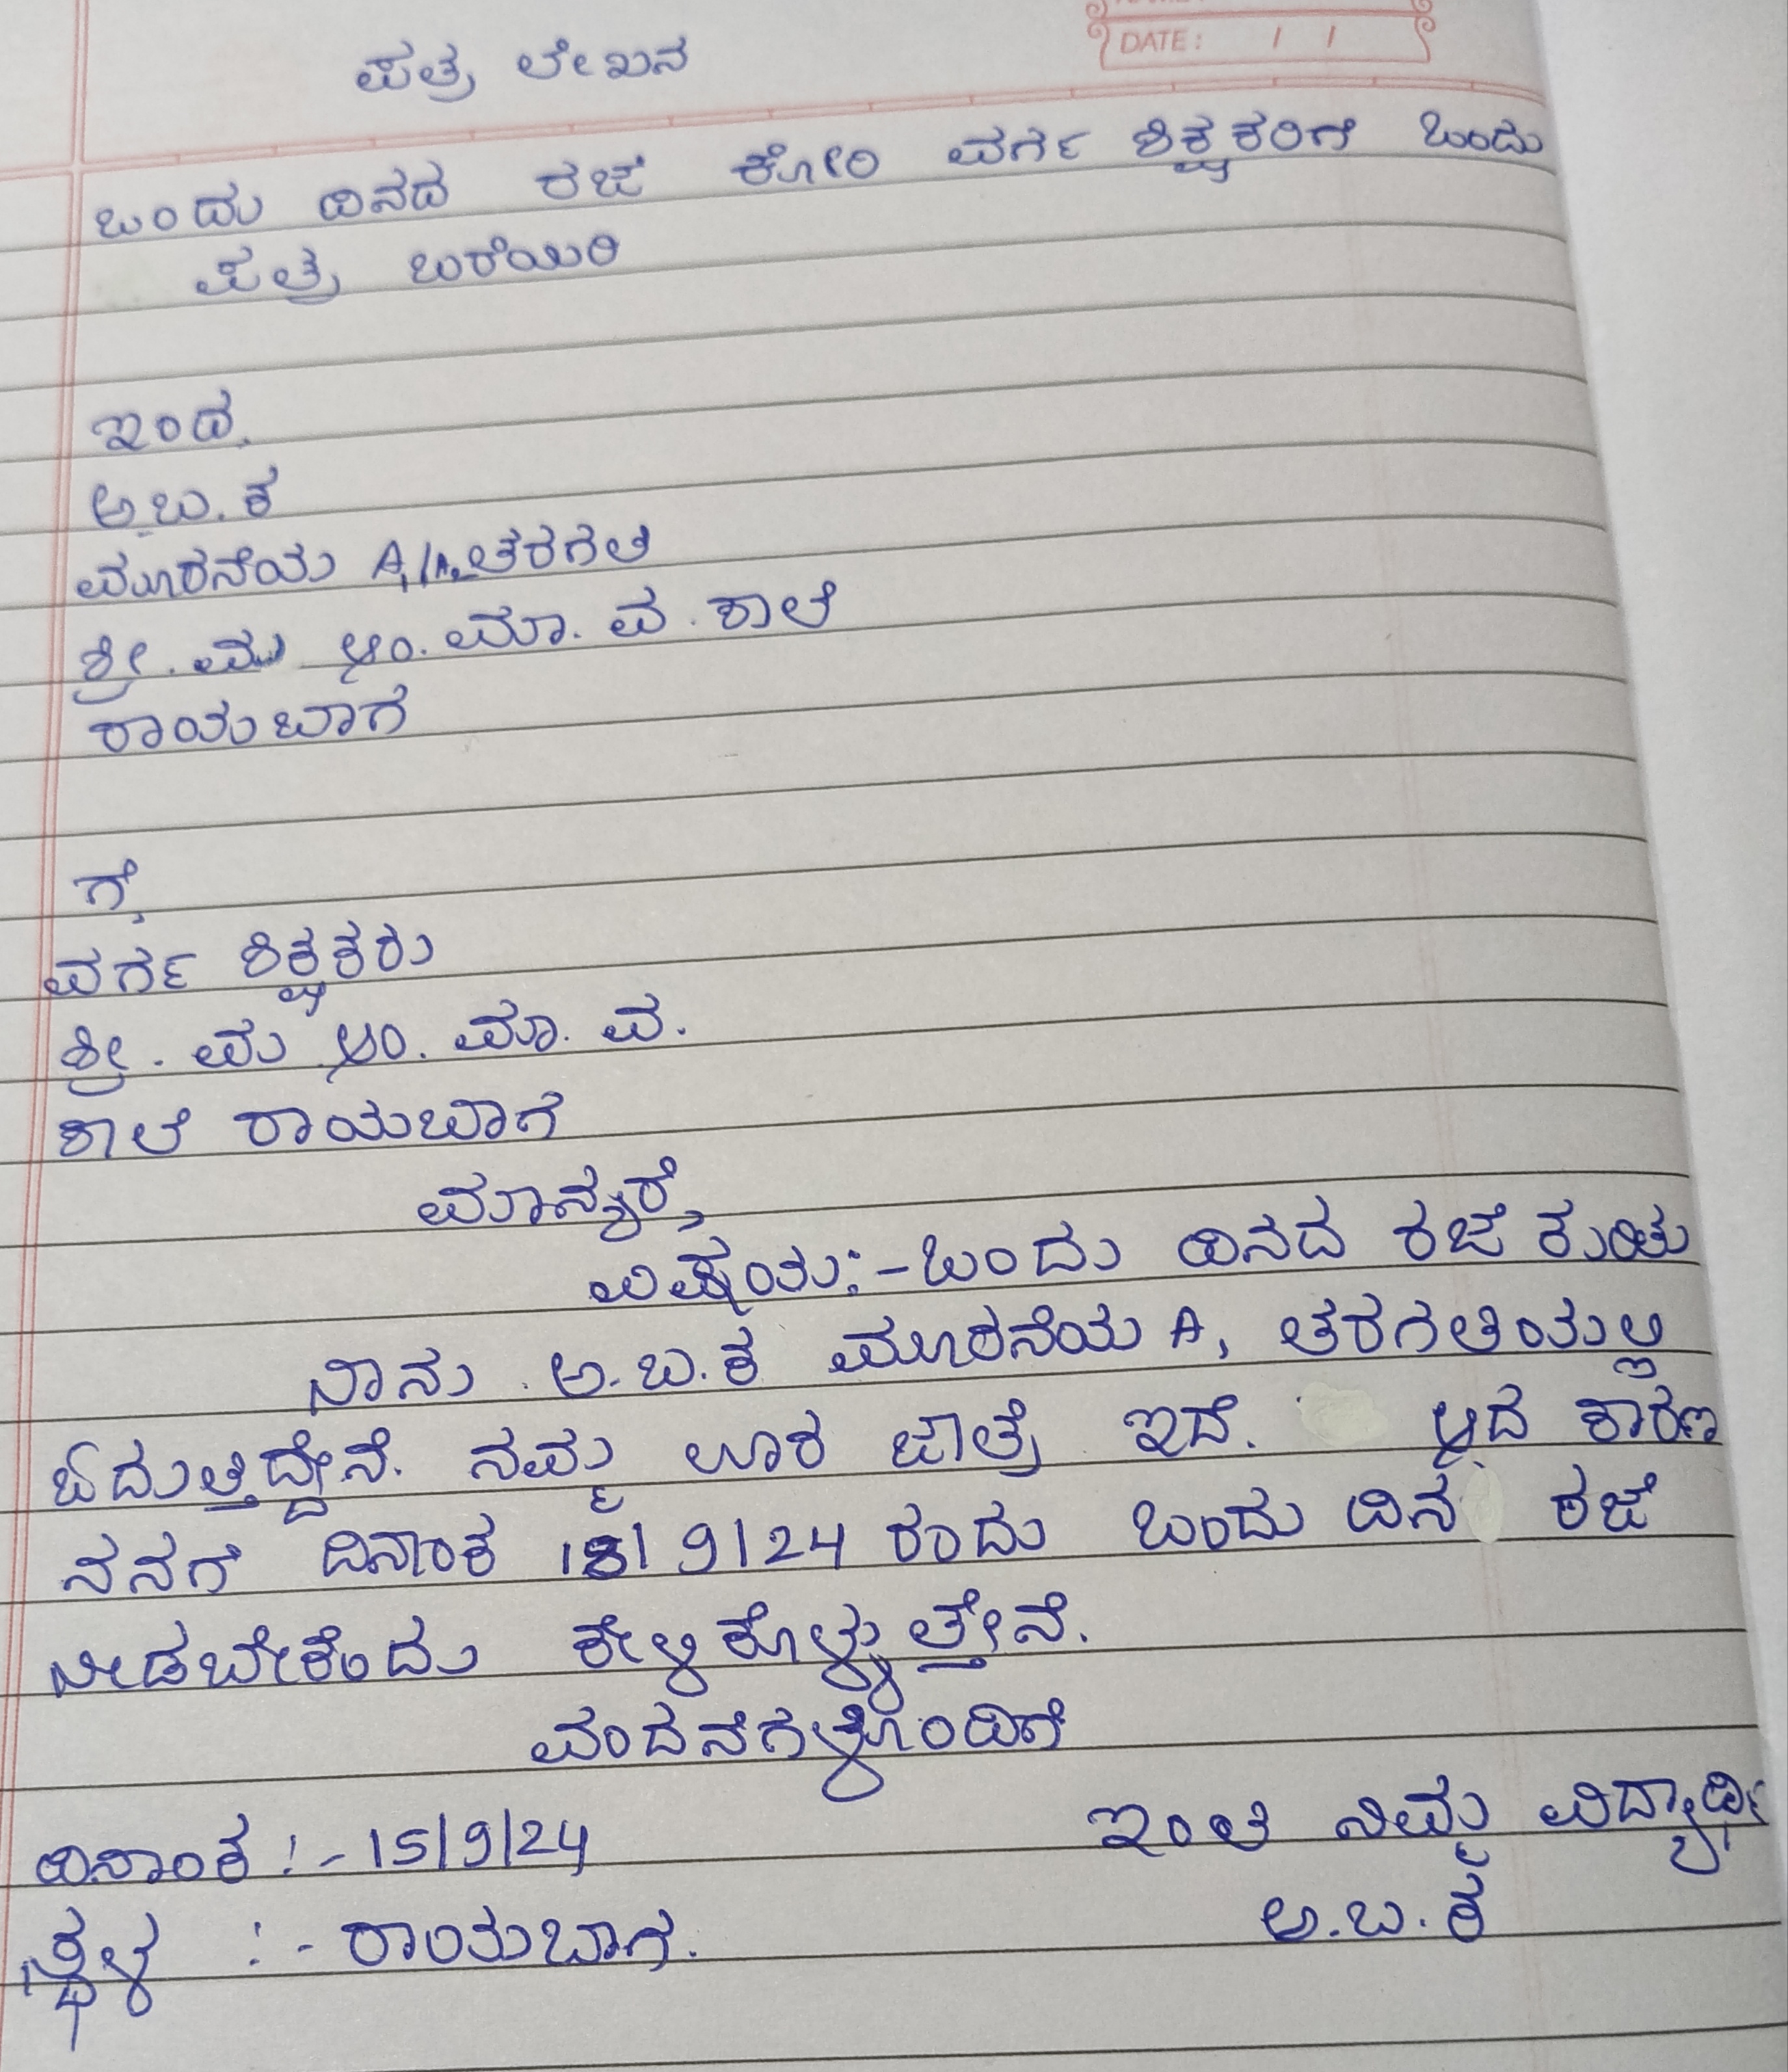 DATE: / /
ಪತ್ರ ಲೇಖನ
ಒಂದು ದಿನದ ರಜೆ ಕೋರಿ ವರ್ಗ ಶಿಕ್ಷಕರಿಗೆ ಒಂದು
ಪತ್ರ ಬರೆಯಿರಿ
ಇಂದ.
ಅ.ಬ.ಕ
ಮೂರನೆಯ A, ತರಗತಿ
ಶ್ರೀ. ಮ ಆಂ. ಮಾ. ವ. ಶಾಲೆ
ರಾಯಬಾಗ
ಗೆ,
ವರ್ಗ ಶಿಕ್ಷಕರು
ಶ್ರೀ. ಮ ಆಂ. ಮಾ. ವ.
ಶಾಲೆ ರಾಯಬಾಗ
ಮಾನ್ಯರೆ,
ವಿಷಯ:-ಒಂದು ದಿನದ ರಜೆ
ನಾನು ಅ.ಬ.ಕ ಮೂರನೆಯ A, ತರಗತಿಯಲ್ಲಿ
ಓದುತ್ತಿದ್ದೇನೆ. ನಮ್ಮ ಊರ ಜಾತ್ರೆ ಇದೆ. ಆದ ಕಾರಣ
ನನಗೆ ದಿನಾಂಕ 18/9/24 ರಂದು ಒಂದು ದಿನ ರಜೆ
ನೀಡಬೇಕೆಂದು ಕೇಳಿಕೊಳ್ಳುತ್ತೇನೆ.
ವಂದನೆಗಳೊಂದಿಗೆ
ದಿನಾಂಕ :- 15/9/24 ಇಂತಿ ನಿಮ್ಮ ವಿದ್ಯಾರ್ಥಿ
ಸ್ಥಳ :- ರಾಯಬಾಗ. ಅ.ಬ.ಕ